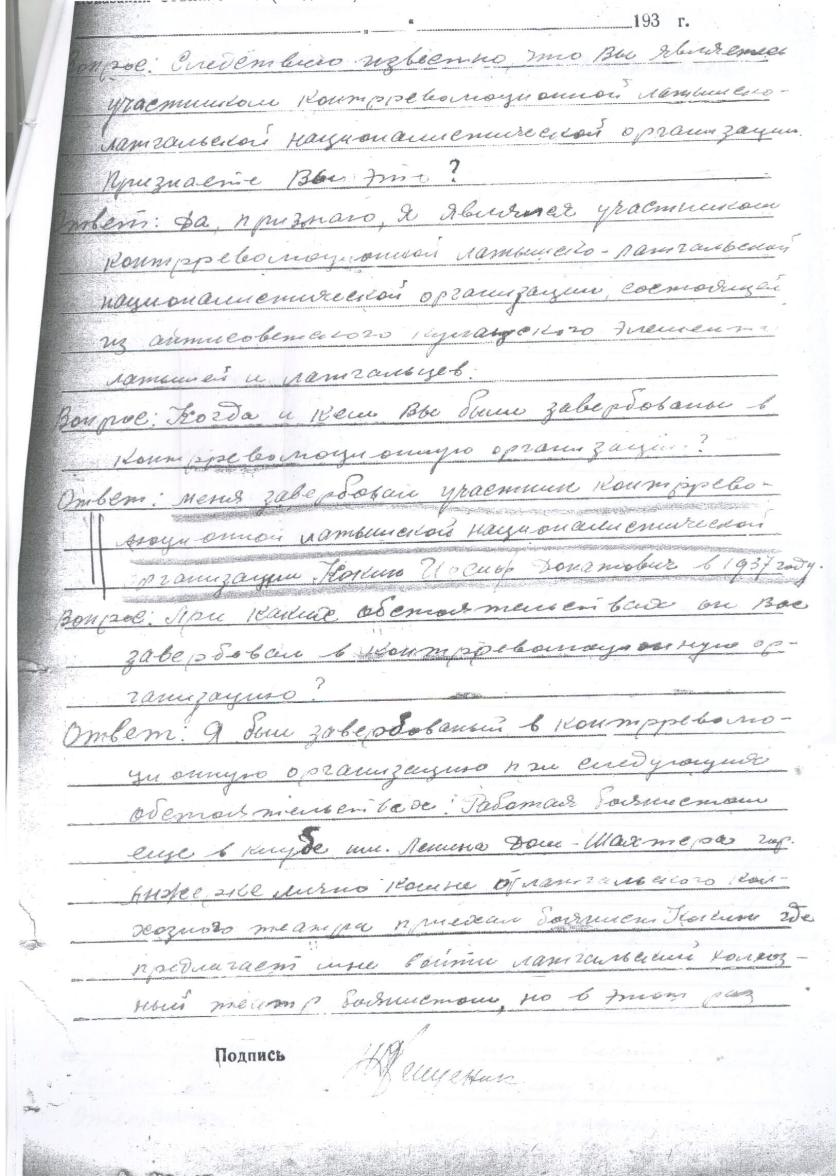 193 г.
Вопрос: Следствию известно, что Вы являетесь
участником контрреволюционной латышско-
латгальской националистической организации.
Признаете Вы это?
Ответ: Да, признаю, я являлся участником
контрреволюционной латышско-латгальской
националистической организации, состоящей
из антисоветского кулацкого элемента
латышей и латгальцев.
Вопрос: Когда и кем Вы были завербованы в
контрреволюционную организацию?
Ответ: меня завербовал участник контррево-
люционной латышской националистической
организации Кокин Иосиф Донатович в 1937 году.
Вопрос: При каких обстоятельствах он Вас
завербовал в контрреволюционную ор-
ганизацию?
Ответ: Я был завербованый в контрреволю-
ционную организацию при следующих
обстоятельствах: Работая баянистом
еще в клубе им. Ленина Дом-Шахтера гор.
лично ко мне от латгальского кол-
хозного театра приехал баянист Кокин где
предлагает мне войти латгальский колхоз-
ный театр баянистом, но в этот раз
Подпись